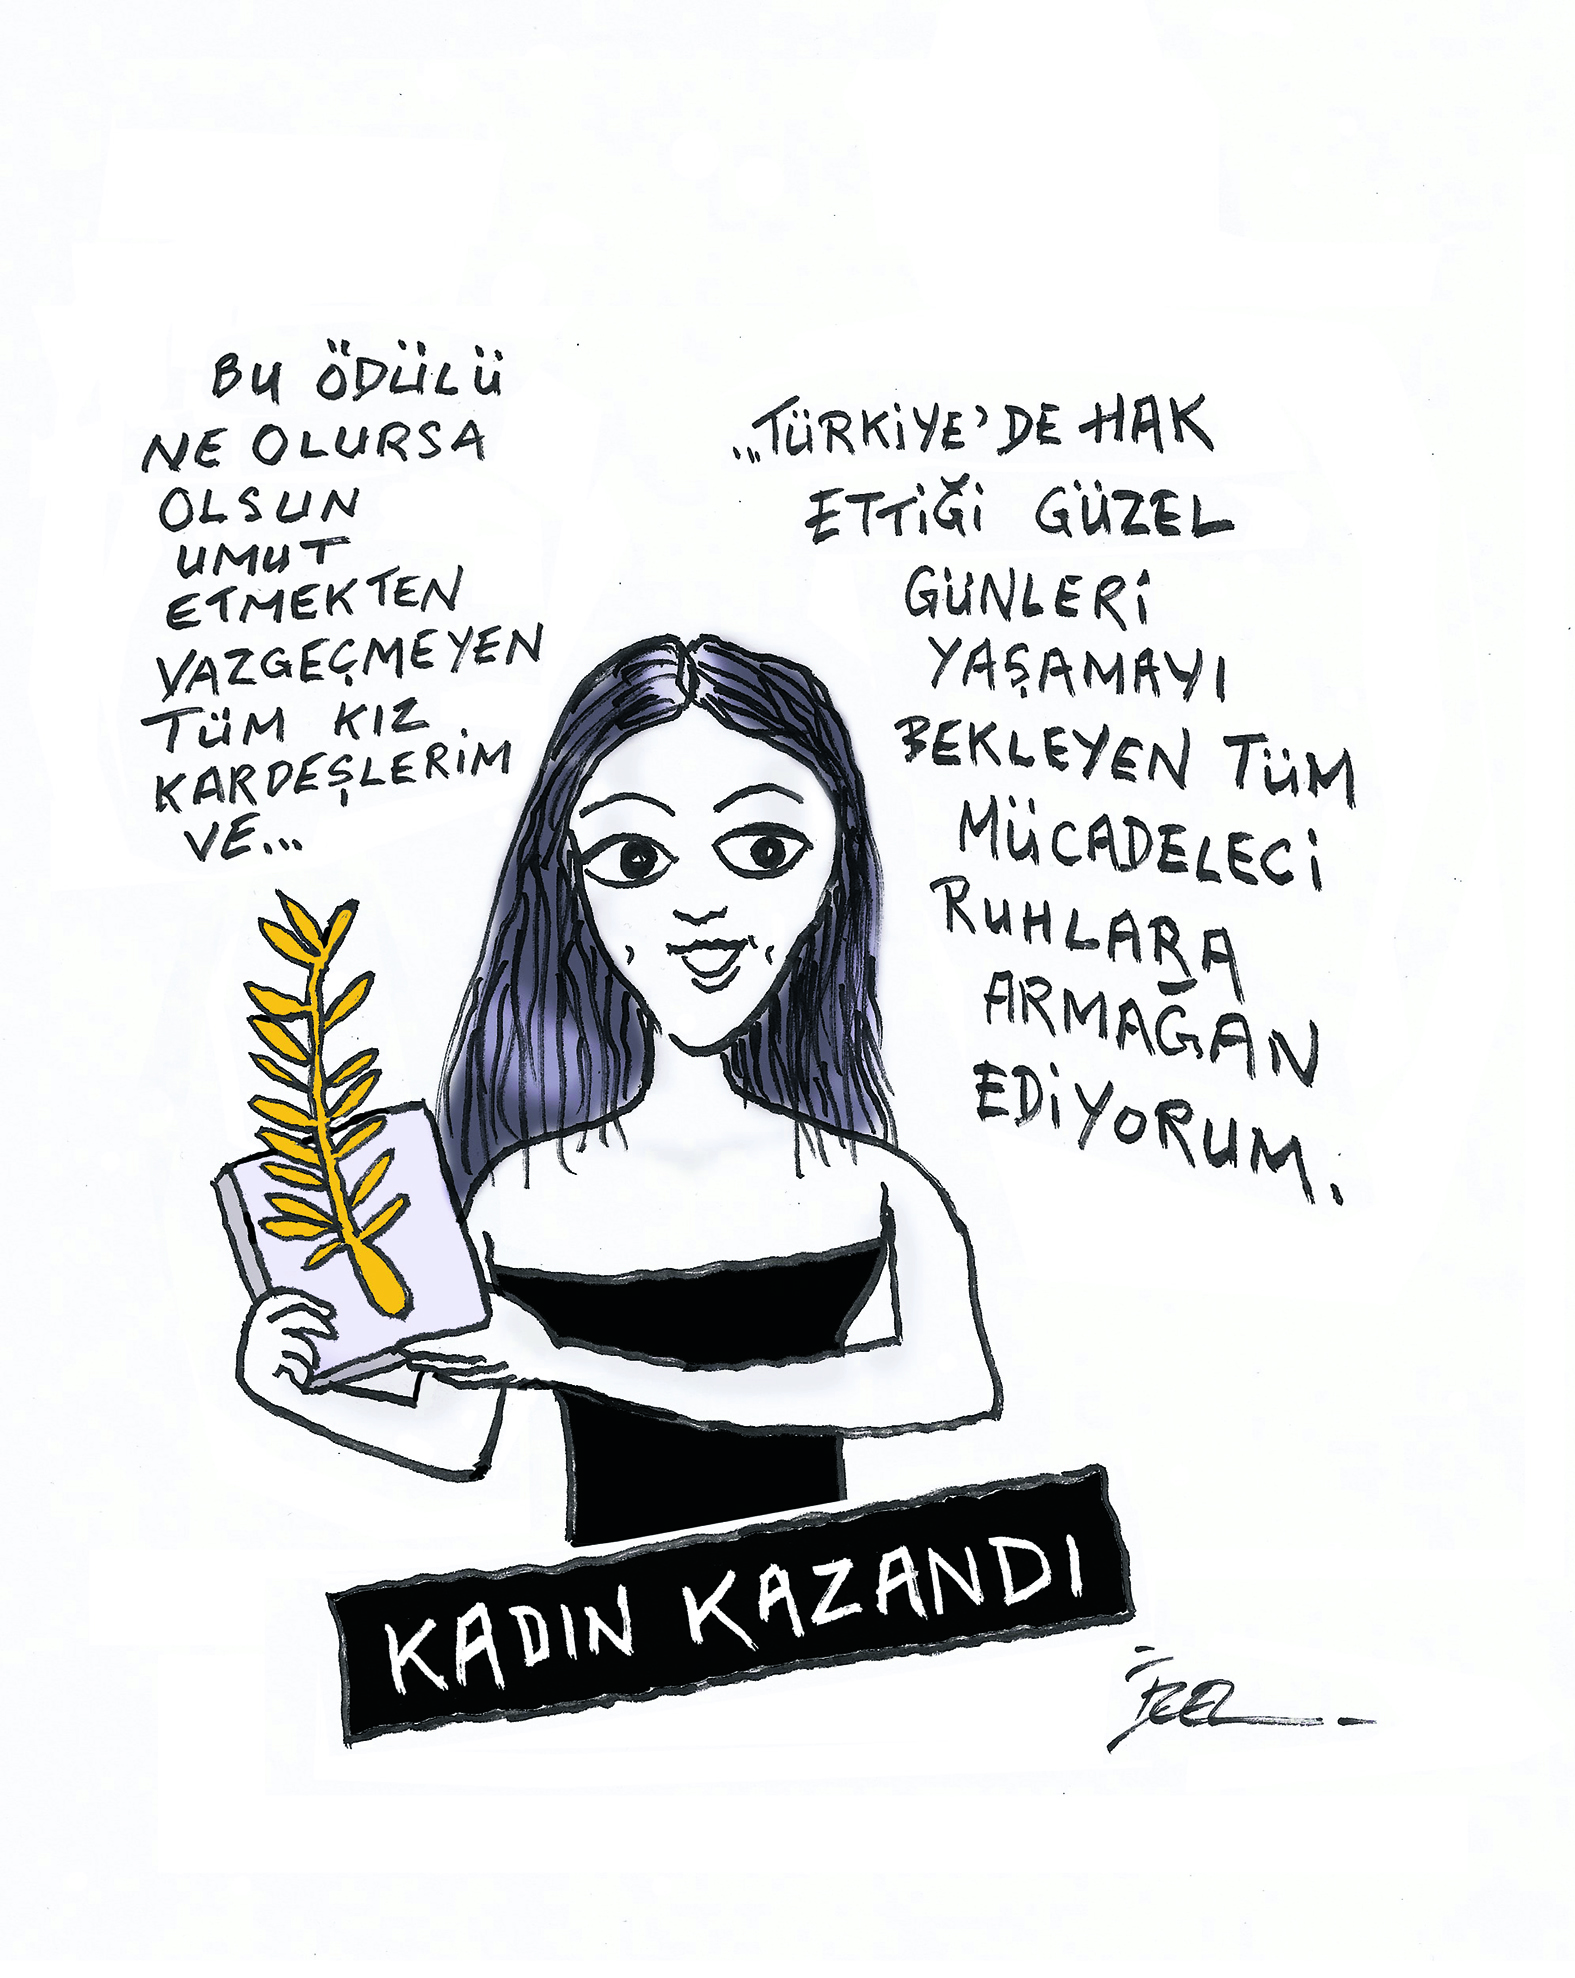 BU ÖDÜLÜ
NE OLURSA
OLSUN
UMUT
ETMEKTEN
VAZGEÇMEYEN
TÜM KIZ
KARDEŞLERİM
VE...
...TÜRKİYE'DE HAK
ETTİĞİ GÜZEL
GÜNLERİ
YAŞAMAYI
BEKLEYEN TÜM
MÜCADELECİ
RUHLARA
ARMAĞAN
EDİYORUM.
KADIN KAZANDI